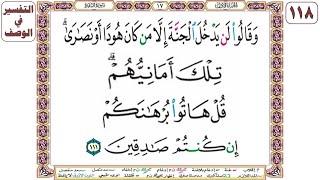 ١١٨
التفسير
في
الوصف
١٧
وَقَالُوا۟ لَن يَدْخُلَ ٱلْجَنَّةَ إِلَّا مَن كَانَ هُودًا أَوْ نَصَٰرَىٰ ۗ
تِلْكَ أَمَانِيُّهُمْ ۗ
قُلْ هَاتُوا۟ بُرْهَٰنَكُمْ
إِن كُنتُمْ صَٰدِقِينَ ١١١